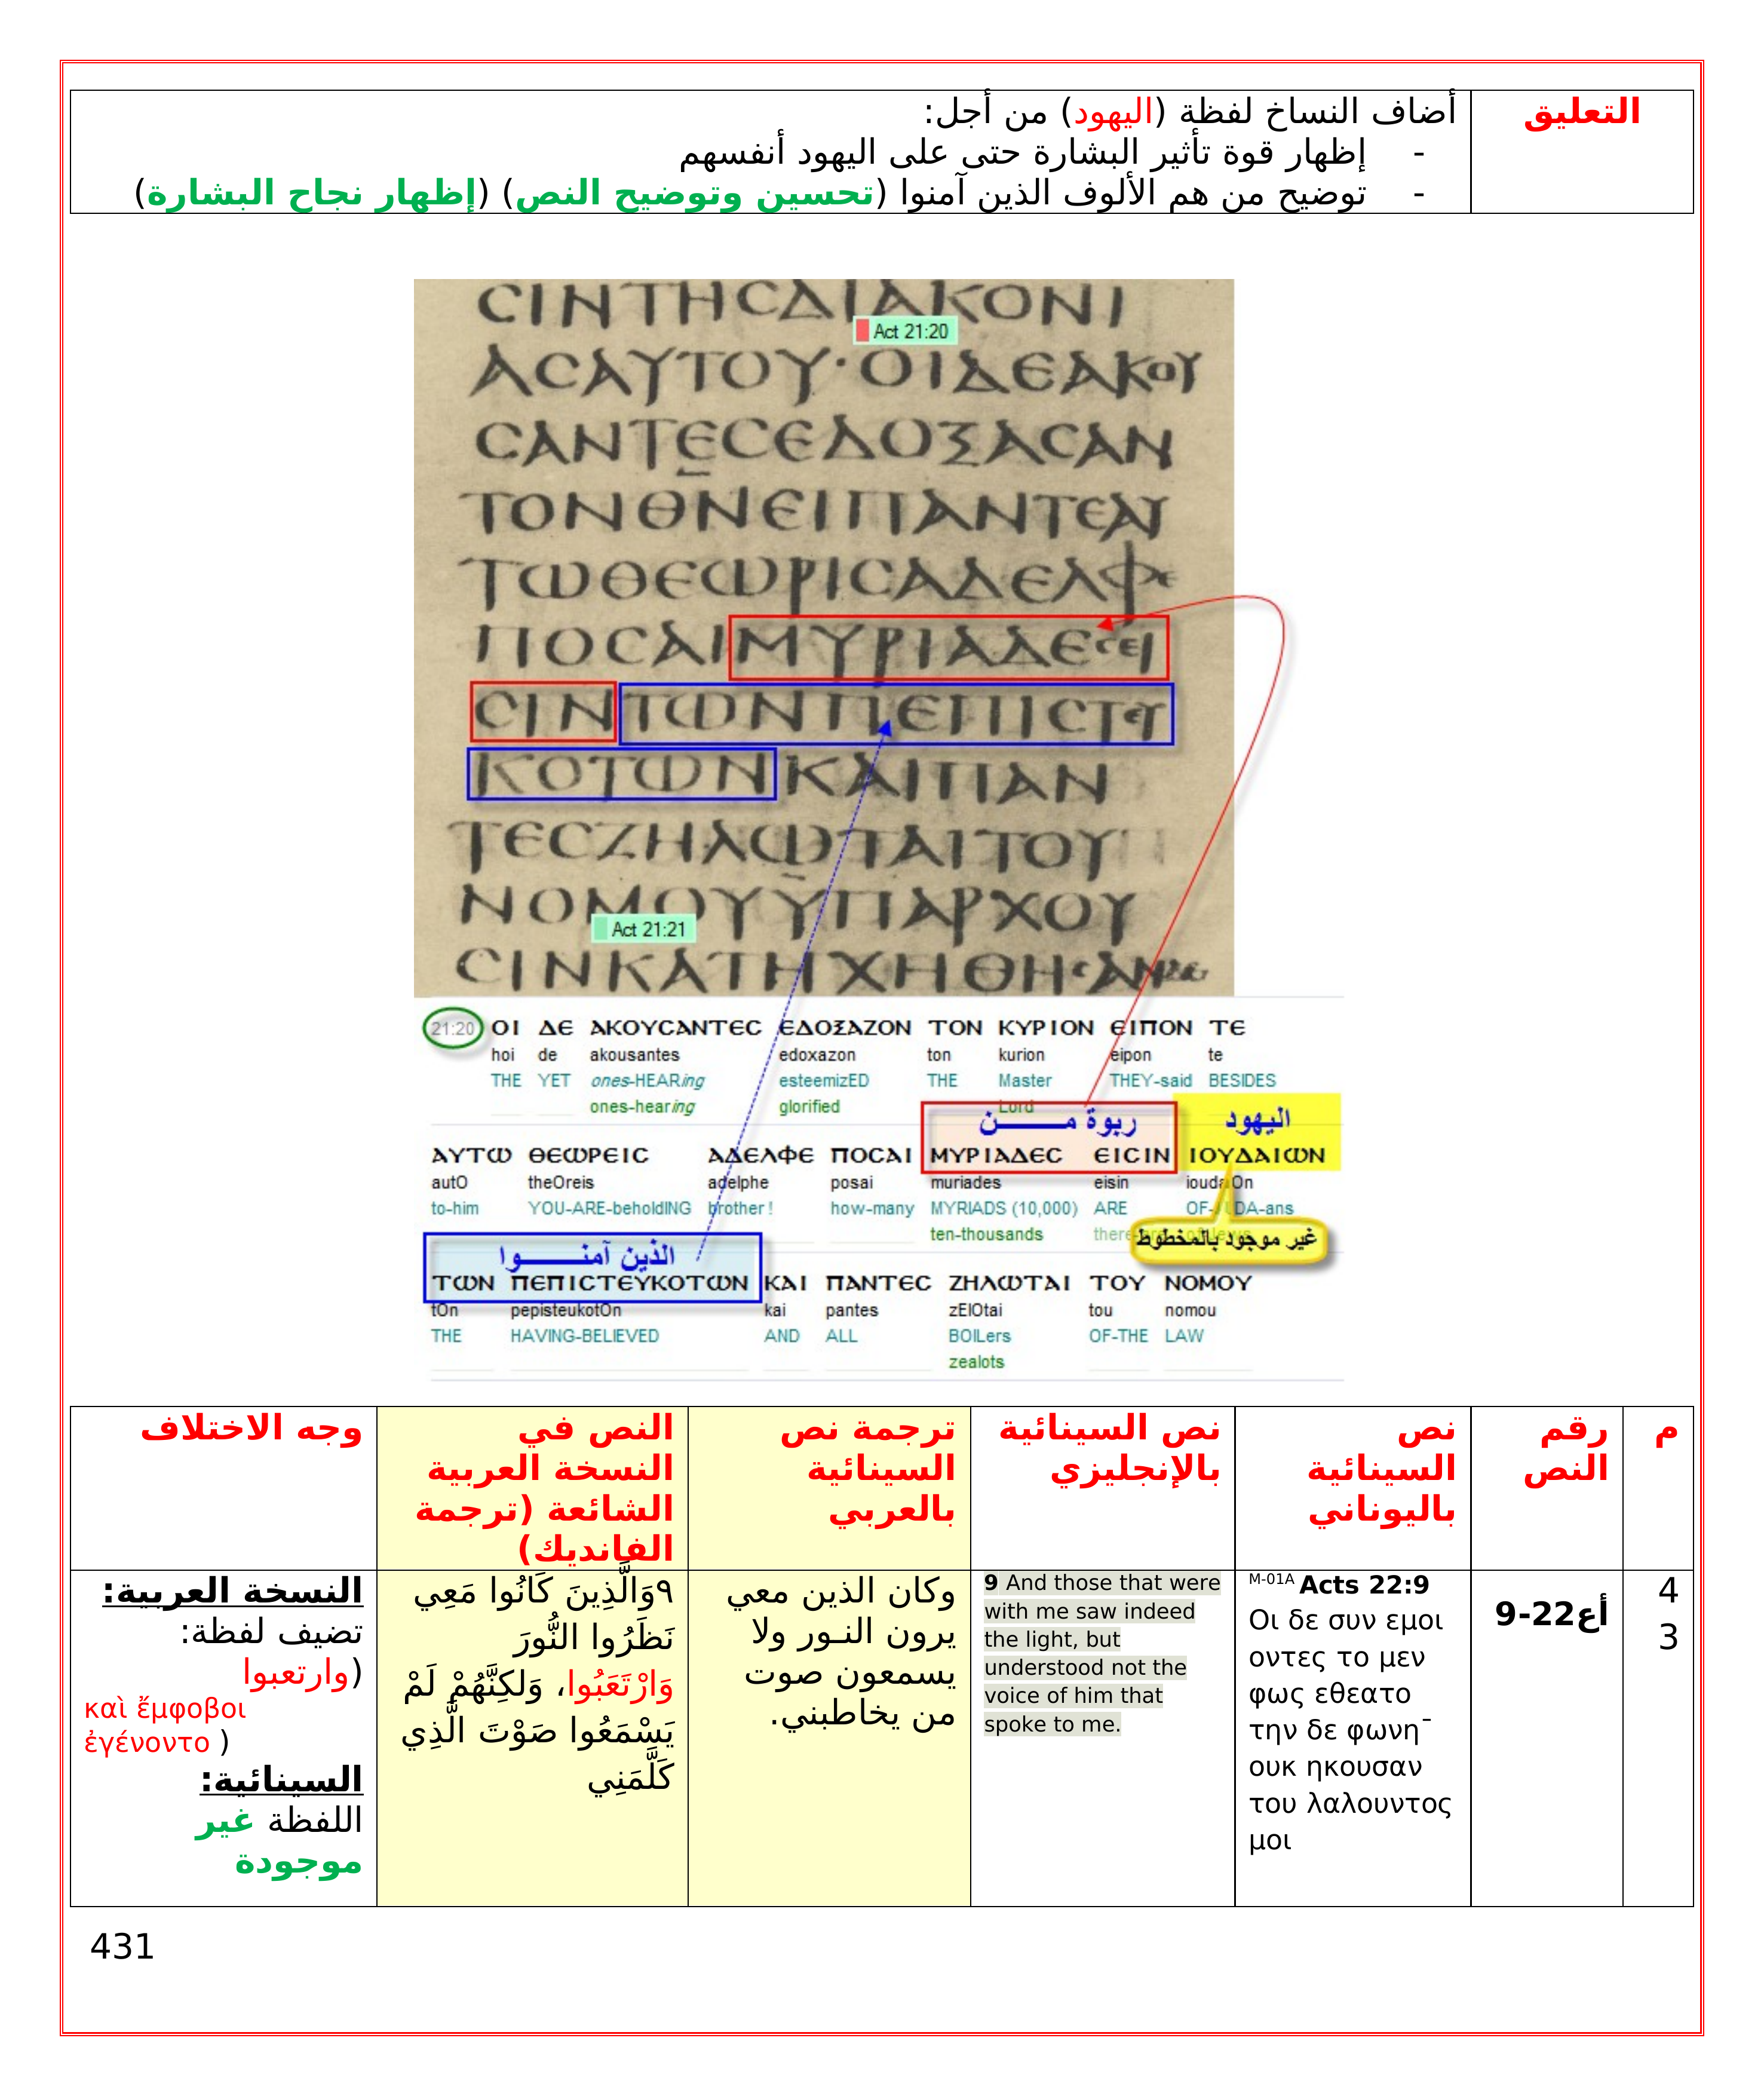 التعليق
أضاف النساخ لفظة (اليهود) من أجل:
- إظهار قوة تأثير البشارة حتى على اليهود أنفسهم
- توضيح من هم الألوف الذين آمنوا (تحسين وتوضيح النص) (إظهار نجاح البشارة)
ϹΙΝΤΗϹΔΙΑΚΟΝΙ
Act 21:20
ΑϹΑΥΤΟΥ·ΟΙΔΕΑΚΟΥ
ϹΑΝΤΕϹΕΔΟΞΑϹΑΝ
ΤΟΝΘΝΕΙΠΑΝΤΕΑΥ
ΤΩΘΕΩΡΙϹΑΔΕΛΦΕ
ΠΟϹΑΙΜΥΡΙΑΔΕϹΕΙ
ϹΙΝΤΩΝΠΕΠΙϹΤΕΥ
ΚΟΤΩΝΚΑΙΠΑΝ
ΤΕϹΖΗΛΩΤΑΙΤΟΥ
ΝΟΜΟΥΥΠΑΡΧΟΥ
Act 21:21
ϹΙΝΚΑΤΗΧΗΘΗϹΑΝ
21:20 ΟΙ ΔΕ ΑΚΟΥϹΑΝΤΕϹ ΕΔΟΞΑΖΟΝ ΤΟΝ ΚΥΡΙΟΝ ΕΙΠΟΝ ΤΕ
hoi de akousantes edoxazon ton kurion eipon te
THE YET ones-HEARing esteemizED THE Master THEY-said BESIDES
ones-hearing glorified Lord
ربوة مـــــن اليهود
ΑΥΤΩ ΘΕΩΡΕΙϹ ΑΔΕΛΦΕ ΠΟϹΑΙ ΜΥΡΙΑΔΕϹ ΕΙϹΙΝ ΙΟΥΔΑΙΩΝ
autO theOreis adelphe posai muriades eisin ioudaiOn
to-him YOU-ARE-beholdING brother ! how-many MYRIADS (10,000) ARE OF-JUDA-ans
ten-thousands
غير موجود بالمخطوط
الذين آمنـــــوا
ΤΩΝ ΠΕΠΙϹΤΕΥΚΟΤΩΝ ΚΑΙ ΠΑΝΤΕϹ ΖΗΛΩΤΑΙ ΤΟΥ ΝΟΜΟΥ
tOn pepisteukotOn kai pantes zElOtai tou nomou
THE HAVING-BELIEVED AND ALL BOILers OF-THE LAW
zealots
م
رقم
النص
نص
السينائية
باليوناني
نص السينائية
بالإنجليزي
ترجمة نص
السينائية
بالعربي
النص في
النسخة العربية
الشائعة (ترجمة
الفانديك)
وجه الاختلاف
4
3
أع22-9
M-01A Acts 22:9
Οι δε συν εμοι
οντες το μεν
φως εθεατο
την δε φωνη¯
ουκ ηκουσαν
του λαλουντος
μοι
9 And those that were
with me saw indeed
the light, but
understood not the
voice of him that
spoke to me.
وكان الذين معي
يرون النـور ولا
يسمعون صوت
من يخاطبني.
٩وَالَّذِينَ كَانُوا مَعِي
نَظَرُوا النُّورَ
وَارْتَعَبُوا، وَلكِنَّهُمْ لَمْ
يَسْمَعُوا صَوْتَ الَّذِي
كَلَّمَنِي
النسخة العربية:
تضيف لفظة:
(وارتعبوا
καὶ ἔμφοβοι
ἐγένοντο )
السينائية:
اللفظة غير
موجودة
431